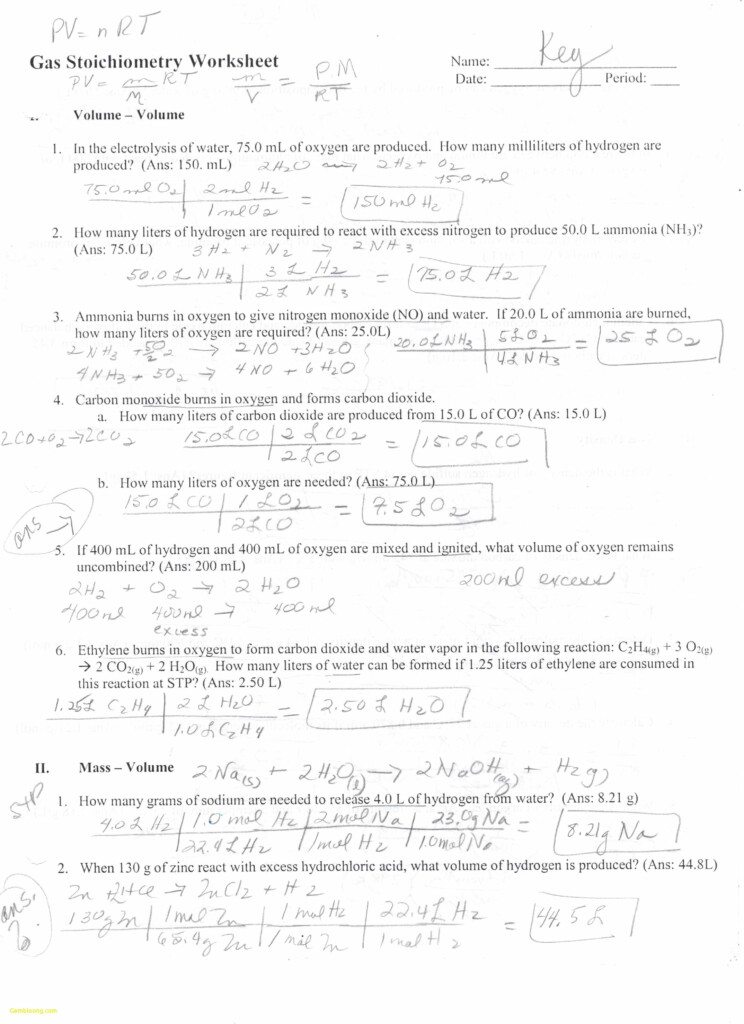 PV = nRT
Gas Stoichiometry Worksheet
Name: Key
PV = m/M RT   m/V = P.M/RT
Date: ____ Period: ____
Volume – Volume
1. In the electrolysis of water, 75.0 mL of oxygen are produced. How many milliliters of hydrogen are
produced? (Ans: 150. mL) 2H2O → 2H2 + O2
75.0 ml
75.0 ml O2 | 2 ml H2
1 ml O2
= 150 ml H2
2. How many liters of hydrogen are required to react with excess nitrogen to produce 50.0 L ammonia (NH3)?
(Ans: 75.0 L) 3H2 + N2 → 2NH3
50.0 L NH3 | 3 L H2
2L NH3
= 75.0 L H2
3. Ammonia burns in oxygen to give nitrogen monoxide (NO) and water. If 20.0 L of ammonia are burned,
how many liters of oxygen are required? (Ans: 25.0L)
2NH3 + 5O2/2 → 2NO + 3H2O
4NH3 + 5O2 → 4NO + 6H2O
20.0L NH3 | 5LO2
4L NH3
= 25 L O2
4. Carbon monoxide burns in oxygen and forms carbon dioxide.
a. How many liters of carbon dioxide are produced from 15.0 L of CO? (Ans: 15.0 L)
2CO+O2→2CO2
15.0LCO | 2 LCO2
2LCO
= 15.0L CO
b. How many liters of oxygen are needed? (Ans: 75.0 L)
15.0 L CO | 1 LO2
2LCO
= 7.5 L O2
ans →
5. If 400 mL of hydrogen and 400 mL of oxygen are mixed and ignited, what volume of oxygen remains
uncombined? (Ans: 200 mL)
200 ml excess
2H2 + O2 → 2H2O
400 ml 400 ml → 400 ml
excess
6. Ethylene burns in oxygen to form carbon dioxide and water vapor in the following reaction: C2H4(g) + 3 O2(g)
→ 2 CO2(g) + 2 H2O(g). How many liters of water can be formed if 1.25 liters of ethylene are consumed in
this reaction at STP? (Ans: 2.50 L)
1.25L C2H4 | 2 L H2O
1.0LC2H4
= 2.50 L H2O
II. Mass – Volume 2Na(s) + 2H2O(l) → 2NaOH(aq) + H2(g)
STP
1. How many grams of sodium are needed to release 4.0 L of hydrogen from water? (Ans: 8.21 g)
4.0L H2 | 1.0 mol H2 | 2 mol Na | 23.0g Na
22.4L H2 | 1 mol H2 | 1.0 mol Na
= 8.21g Na
2. When 130 g of zinc react with excess hydrochloric acid, what volume of hydrogen is produced? (Ans: 44.8L)
Zn + 2HCl → ZnCl2 + H2
ans.
130g Zn | 1 mol Zn | 1 mol H2 | 22.4L H2
65.4g Zn | 1 mol Zn | 1 mol H2
= 44.5 L